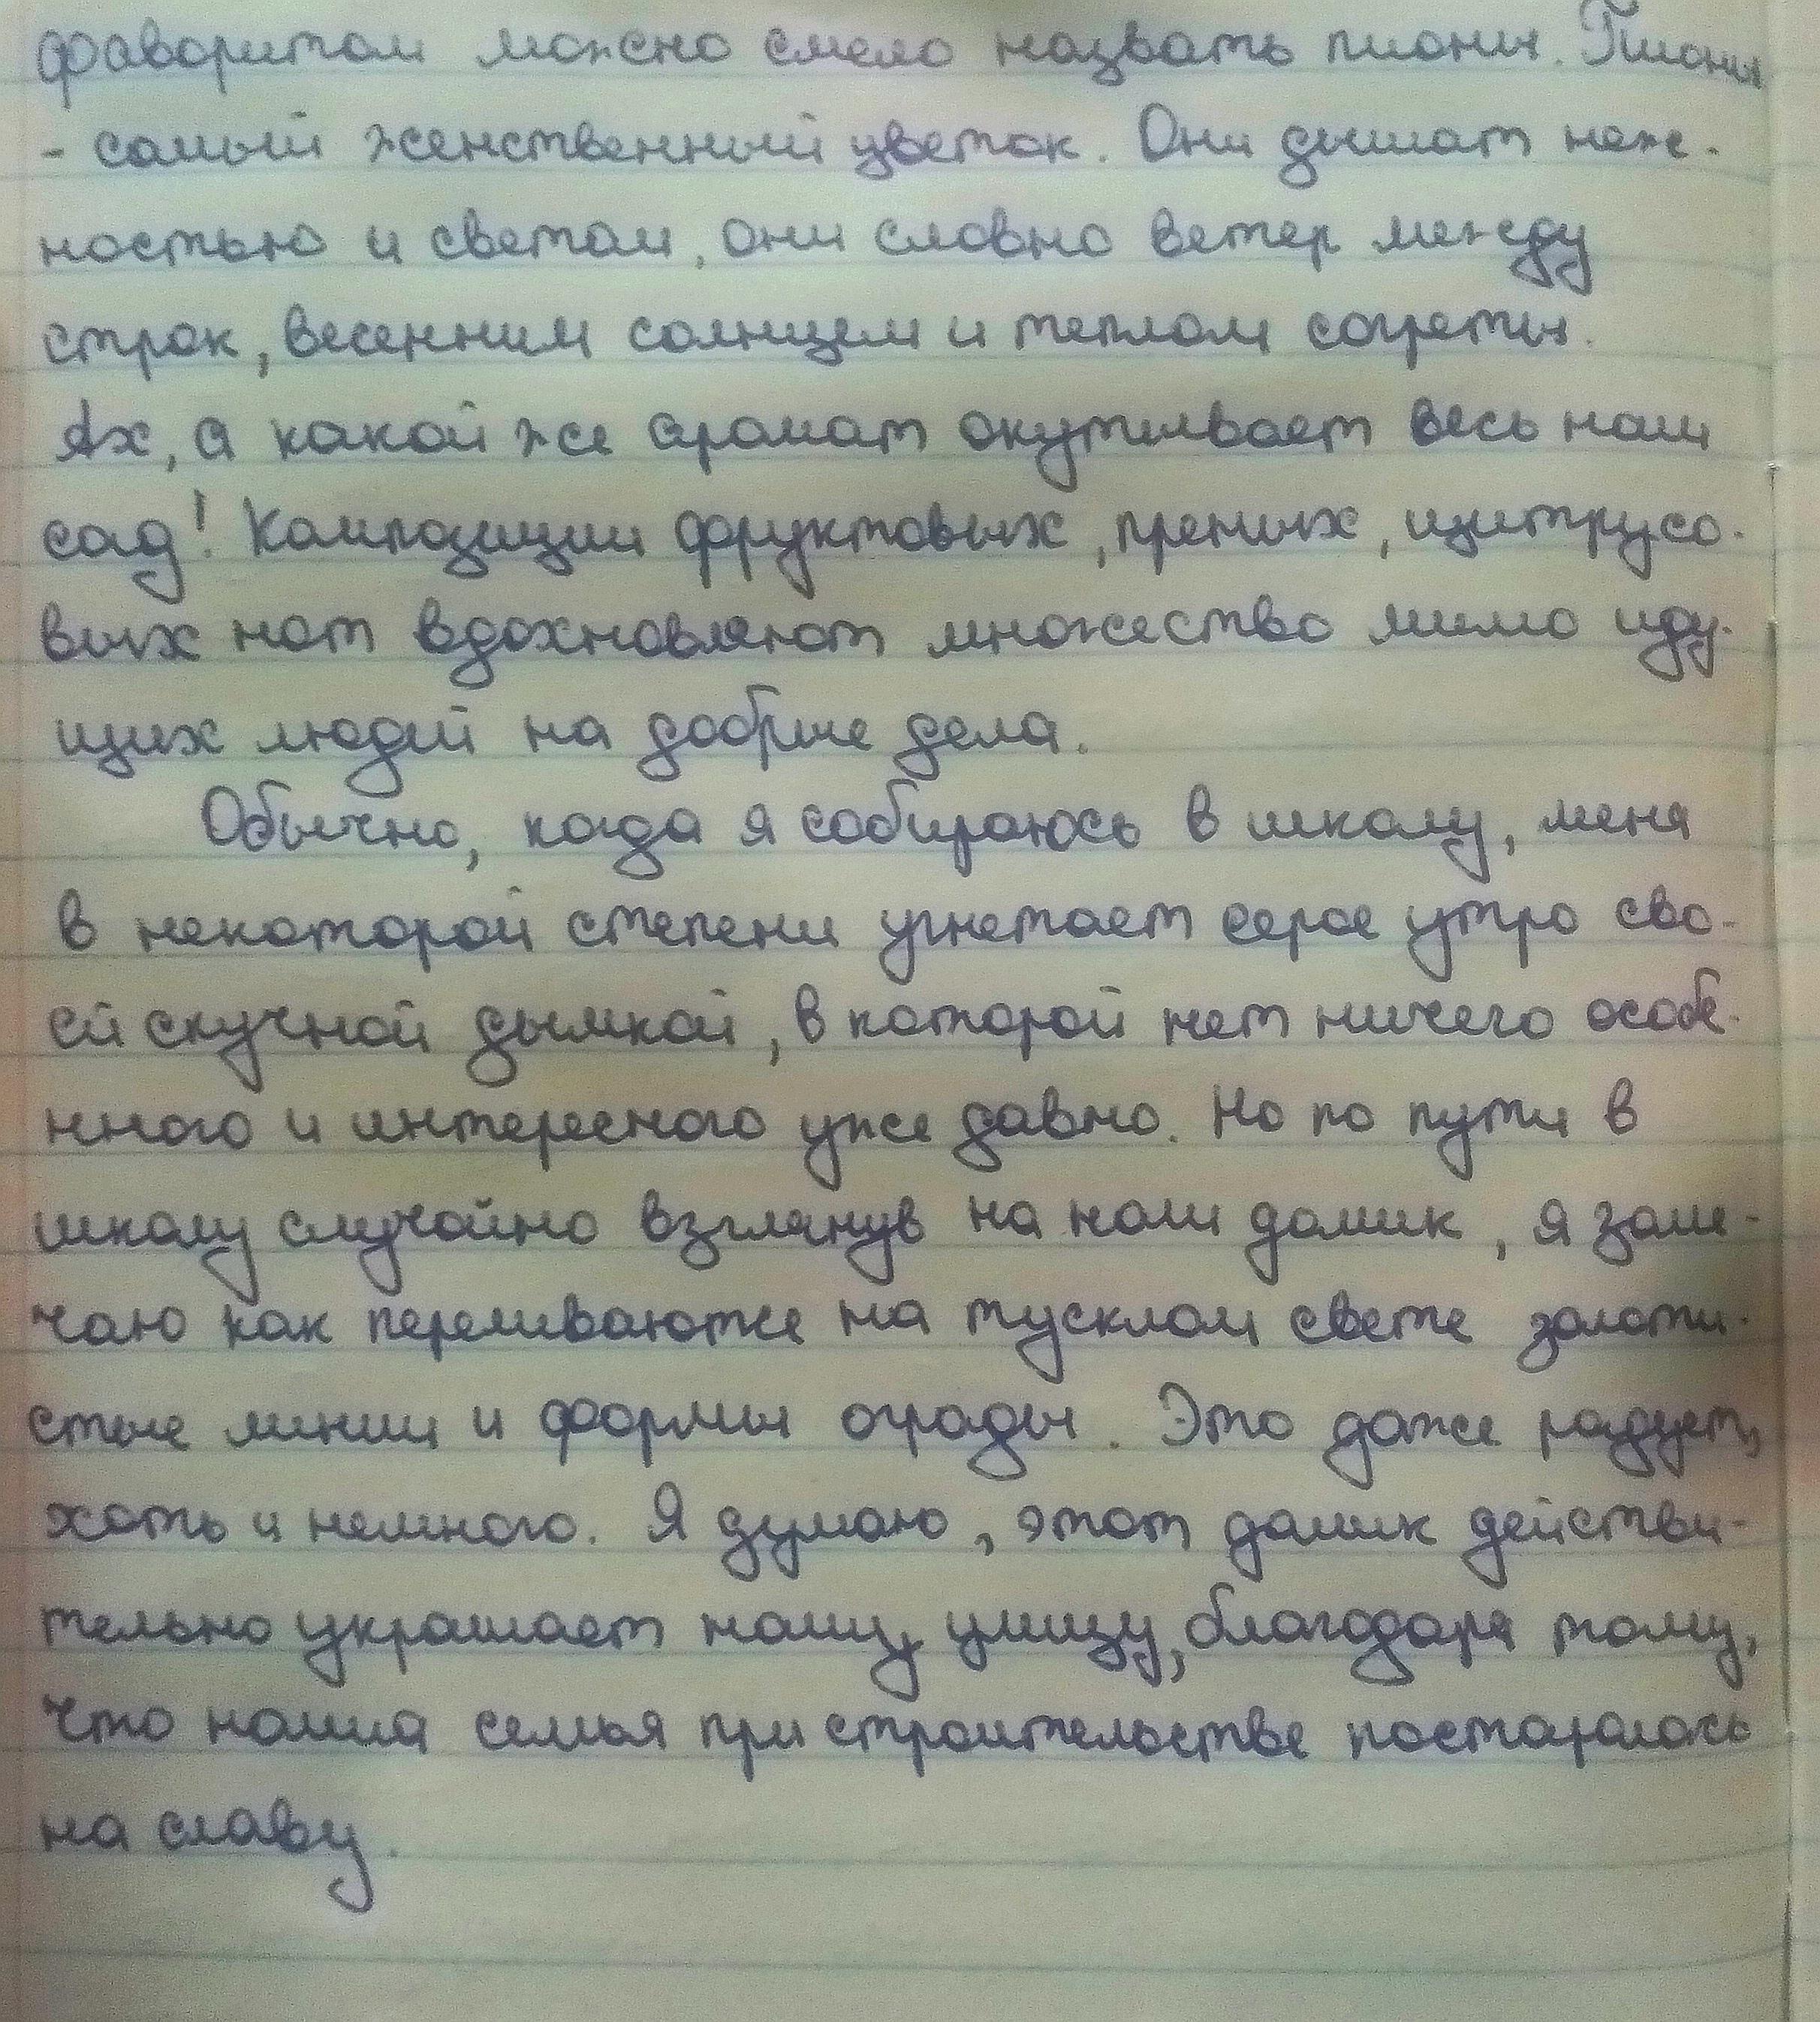 фаворитом можно смело назвать пионы. Пионы
- самый женственный цветок. Они дышат неж-
ностью и светом, они словно ветер между
строк, весенним солнцем и теплом согреты.
Ах, а какой же аромат окутывает весь наш
сад! Композиции фруктовых, пряных, цитрусо-
вых нот вдохновляют множество мимо иду-
щих людей на добрые дела.
Обычно, когда я собираюсь в школу, меня
в некоторой степени угнетает серое утро сво-
ей скучной дымкой, в которой нет ничего особе-
нного и интересного уже давно. Но по пути в
школу случайно взглянув на наш домик, я заме-
чаю как переливаются на тусклом свете золоти-
стые линии и формы ограды. Это даже радует,
хоть и немного. Я думаю, этот домик действи-
тельно украшает нашу улицу, благодаря тому,
что наша семья при строительстве постаралась
на славу.